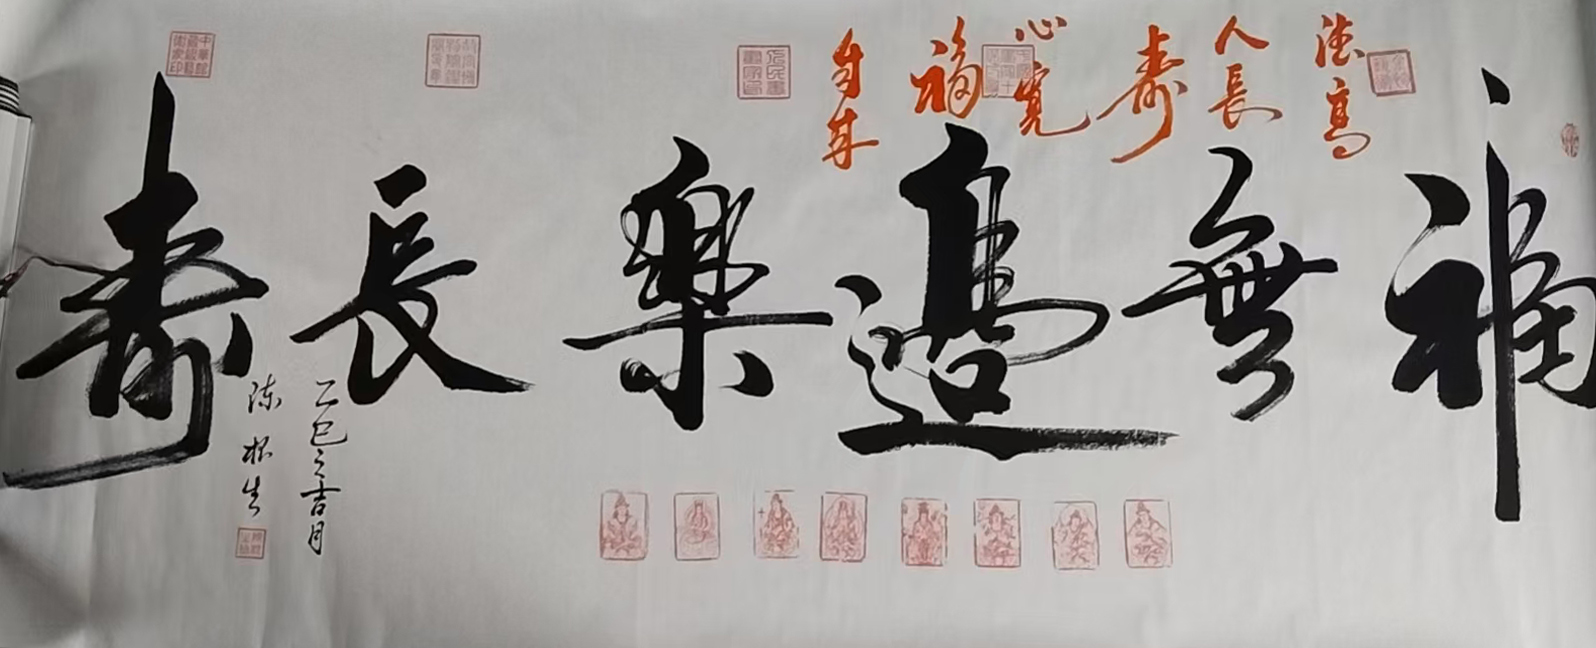 福無邊樂長壽
德高
人長
壽
心寬
福
自来
乙巳之吉月
陈松生